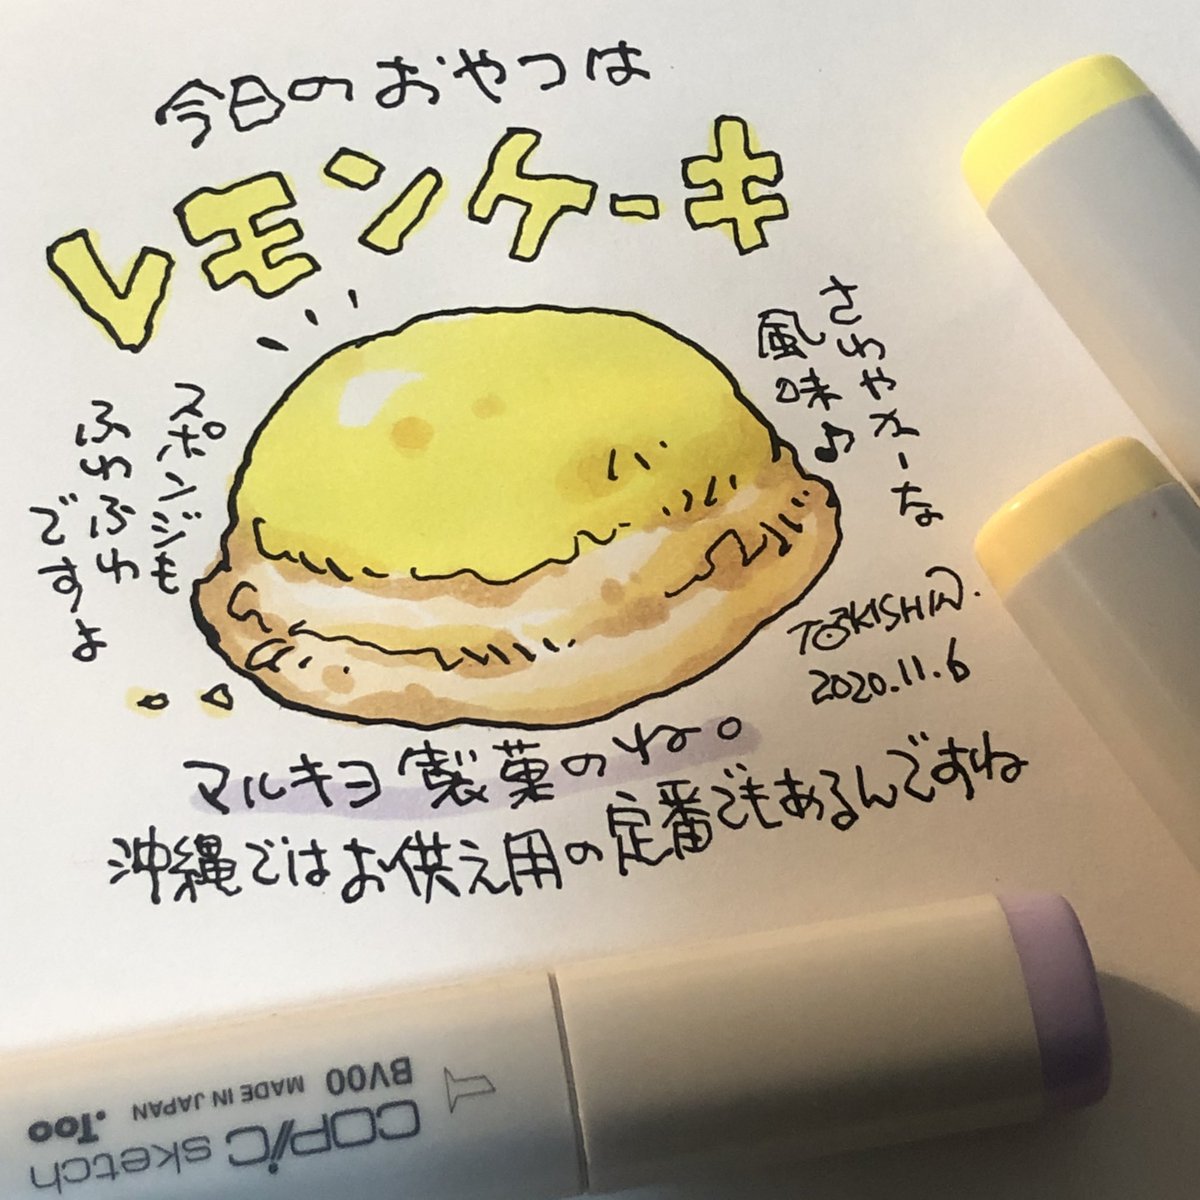 今日のおやつは
レモンケーキ
さわやかーな
風味♪
スポンジも
ふわふわ
ですよ
TOKISHIN.
2020.11.6
マルキヨ製菓のね。
沖縄ではお供え用の定番でもあるんですね
BV00 MADE IN JAPAN .Too
COPIC sketch